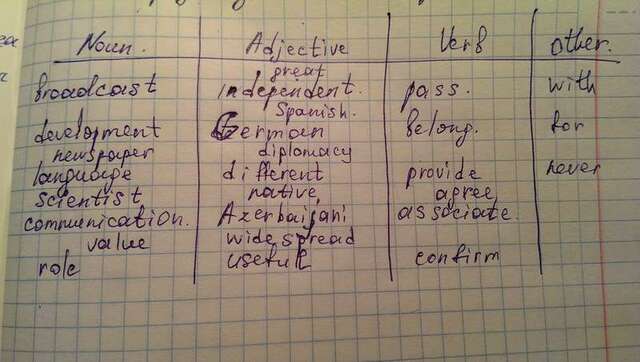 Noun. Adjective Verb other.
great
broadcast independent. pass. with
Spanish.
development German belong. for
newspaper diplomacy
language different provide never
scientist native, agree
communication. Azerbaijani associate.
value widespread
role usefull confirm